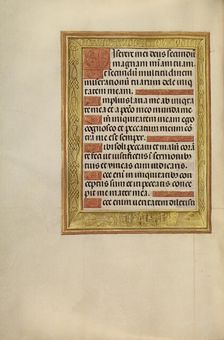 Miserere mei deus secundum
magnam mi am tuam.
Et secundum multitudinem
miserationum tuarum dele iniq
tatem meam.
Amplius laua me ab iniquita
te mea et a pctō meo munda me
Qm iniquitatem meam ego
cognosco et peccatum meum con
tra me est semper.
Tibi soli peccaui et malū cora
te feci ut iustificeris ī sermonibus
tuis et vincas cum iudicaris.
Ecce eni in iniquitatibus con
ceptus sum et in peccatis conce
pit me mater mea.
Ecce enim veritatem dilexisti